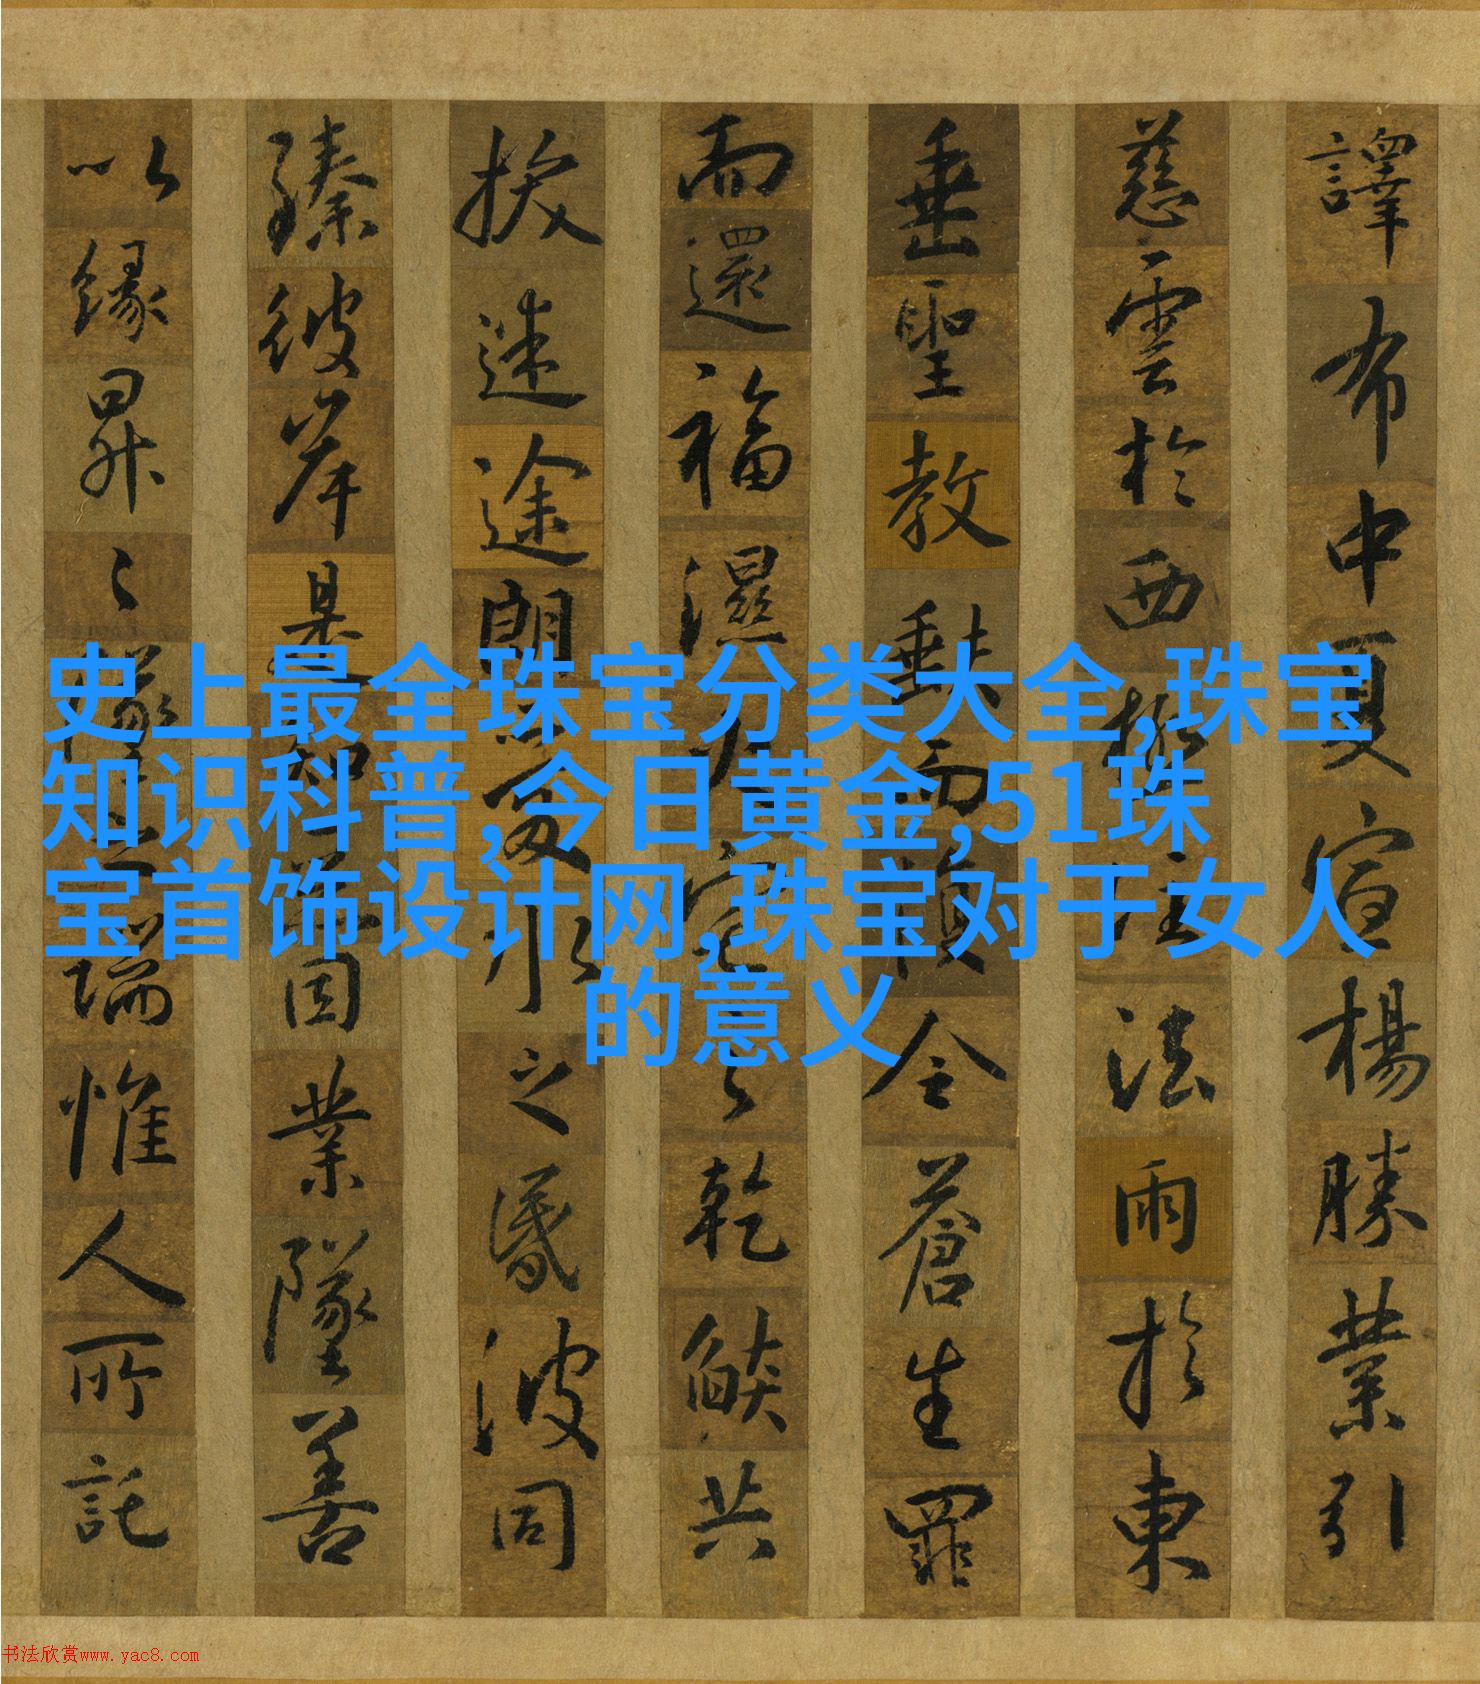 史上最全珠宝分类大全,珠宝
知识科普,今日黄金,51珠
宝首饰设计网,珠宝对于女人
的意义
譯布中夏宣楊勝業引
慈雲於西極注法雨於東
垂聖教缺而復全蒼生罪
而還福濕火宅之乾燄共
拔迷途朗愛水之昏波同
臻彼岸是知惡因業墜善
以緣昇〻墜之端惟人所託
书法欣赏www.yac8.com